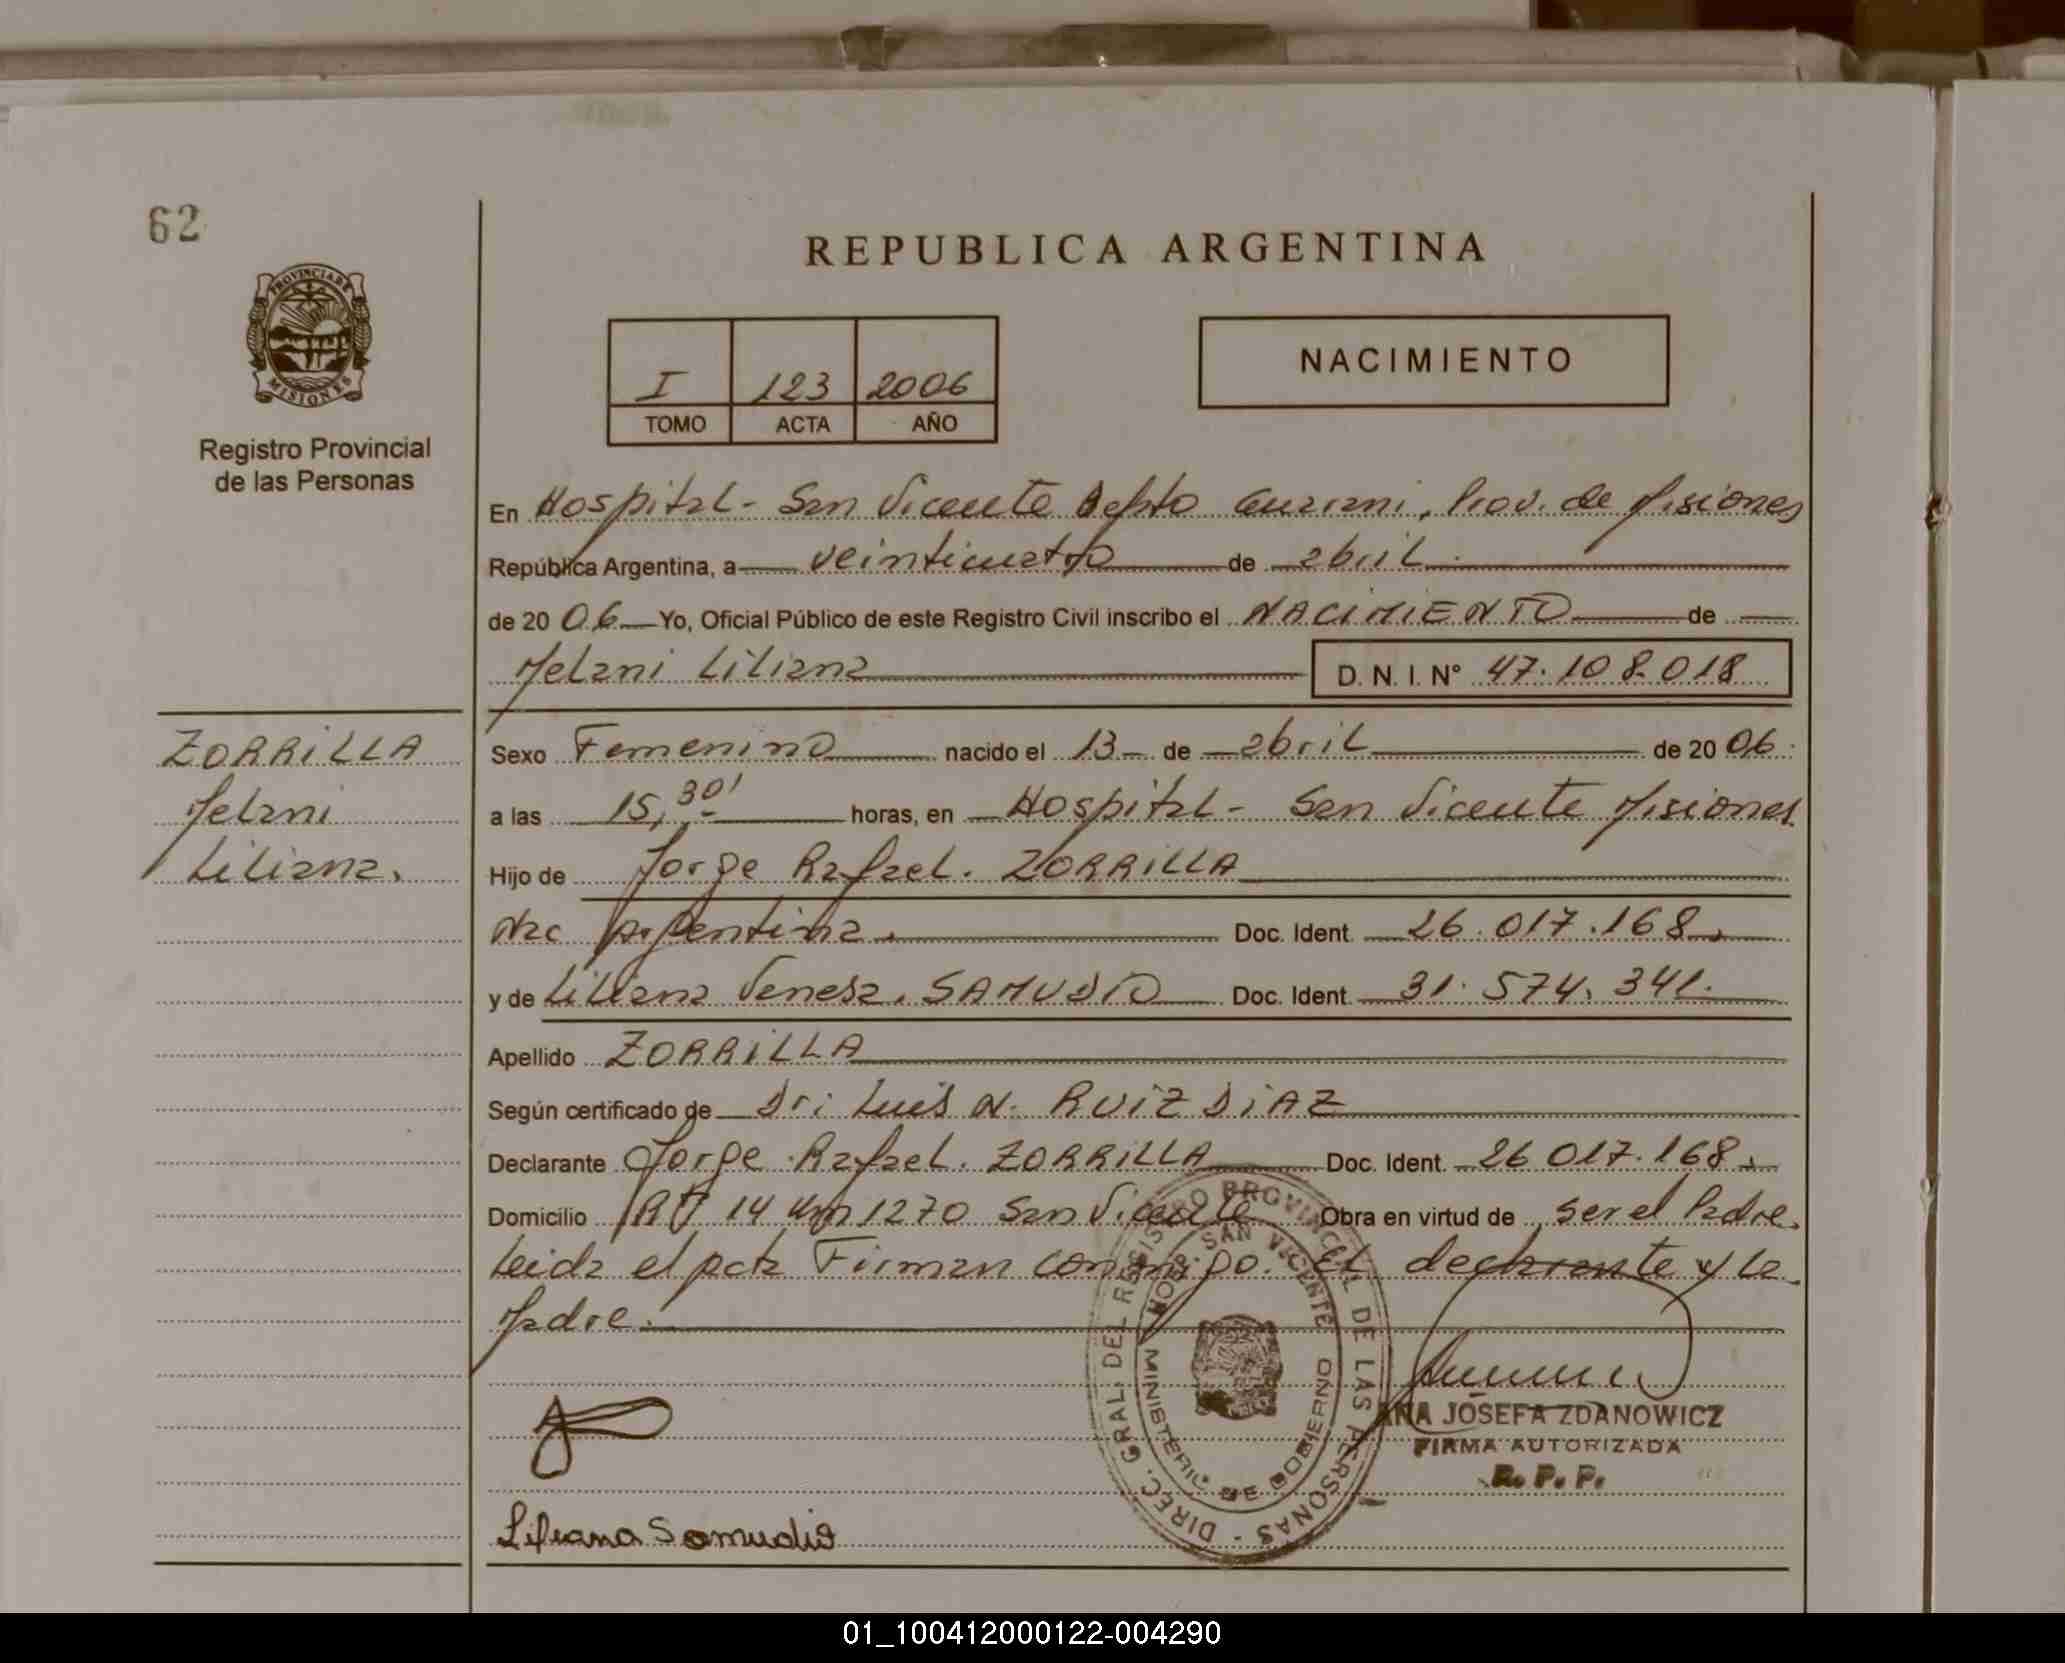 62
REPUBLICA ARGENTINA
PROVINCIA DE
MISIONES
Registro Provincial
de las Personas
I 123 2006
TOMO ACTA AÑO
NACIMIENTO
En Hospital - San Vicente Depto Guarani, Prov. de Misiones
República Argentina, a veinticuatro de abril
de 20 06 Yo, Oficial Público de este Registro Civil inscribo el NACIMIENTO de
Melani Liliana D. N. I. N° 47.108.018
ZORRILLA
Melani
Liliana.
Sexo Femenino nacido el 13 de abril de 20 06
a las 15,30' horas, en Hospital - San Vicente Misiones
Hijo de Jorge Rafael. ZORRILLA
Nac Argentina. Doc. Ident. 26.017.168.
y de Liliana Venesa. SAMUDIO Doc. Ident. 31.574.341.
Apellido ZORRILLA
Según certificado de Dr: Luis N. RUIZ DIAZ
Declarante Jorge Rafael. ZORRILLA Doc. Ident. 26 017.168.
Domicilio 14 Km 1270 San Vicente Obra en virtud de ser el Padre.
Leida el acta Firman conmigo. El declarante y la
Madre.
DIREC. GRAL. DEL REGISTRO PROVINCIAL DE LAS PERSONAS -
HOSP. SAN VICENTE
MINISTERIO DE GOBIERNO
ANA JOSEFA ZDANOWICZ
FIRMA AUTORIZADA
R. P. P.
Liliana Samudio
01_100412000122-004290